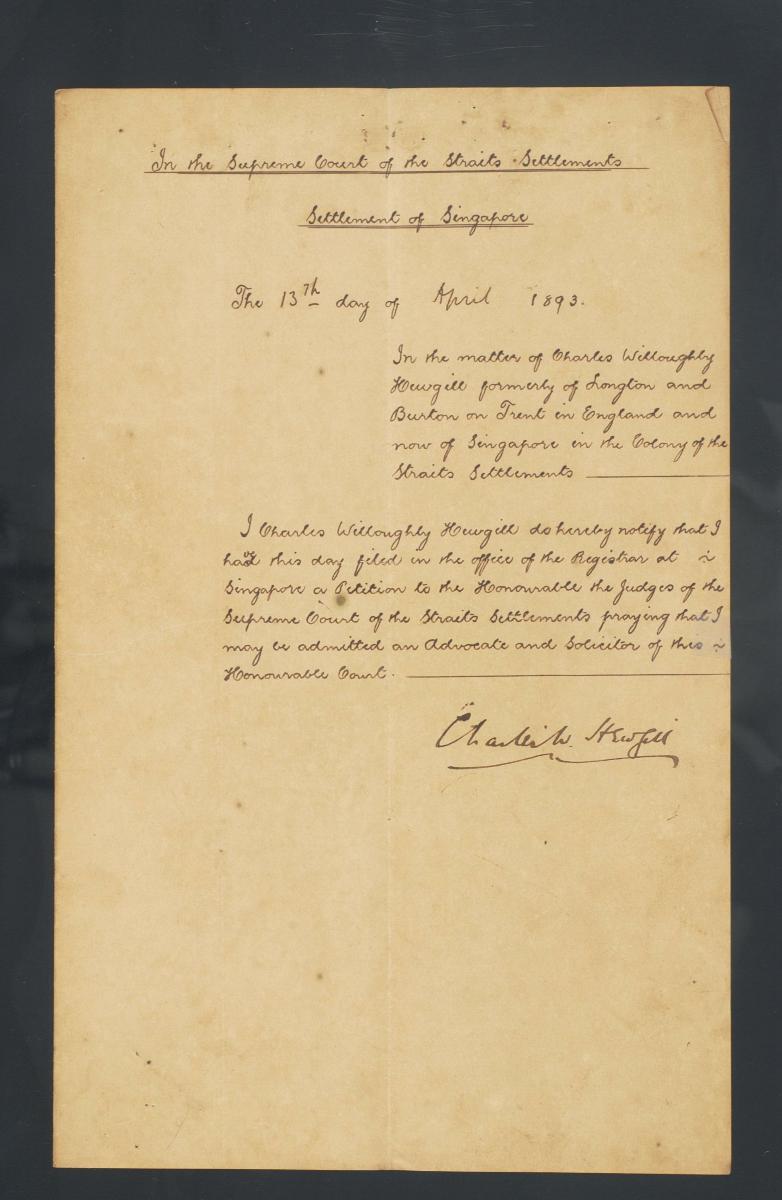 In the Supreme Court of the Straits Settlements
Settlement of Singapore
The 13th day of April 1893.
In the matter of Charles Willoughby
Hewgill formerly of Longton and
Burton on Trent in England and
now of Singapore in the Colony of the
Straits Settlements
I Charles Willoughby Hewgill do hereby notify that I
this day filed in the office of the Registrar at
Singapore a Petition to the Honourable the Judges of the
Supreme Court of the Straits Settlements praying that I
may be admitted an Advocate and Solicitor of this
Honourable Court.
Charles W. Hewgill